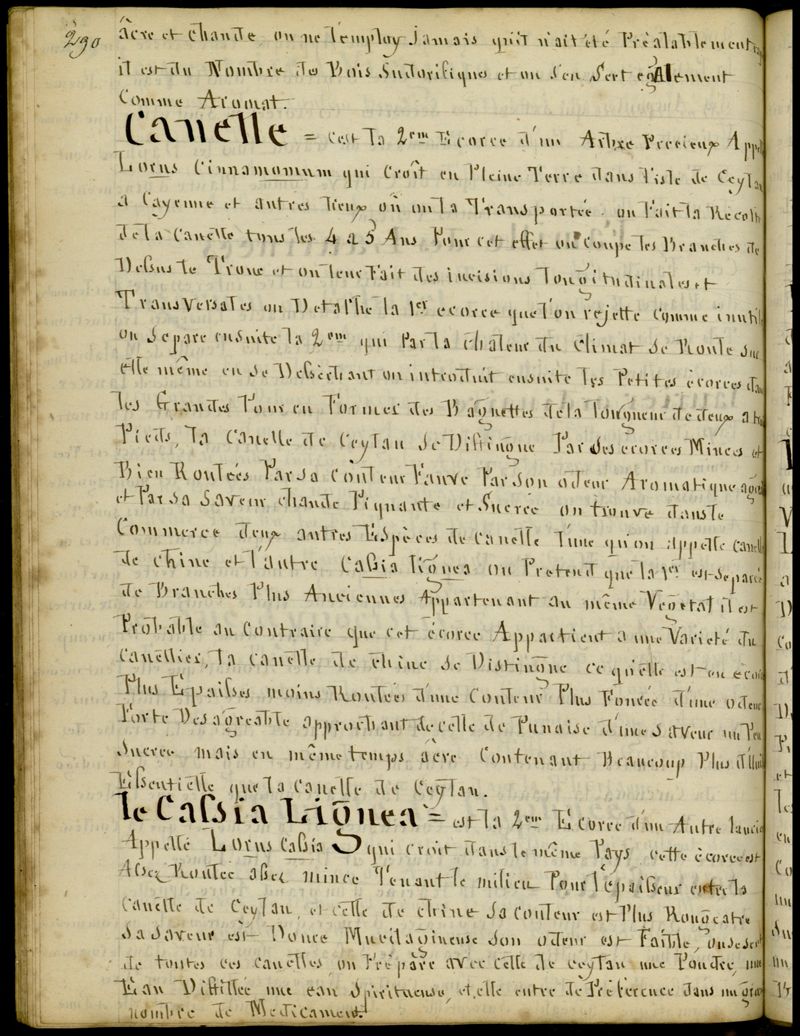 290
âcre et chaude on ne l'employ jamais qu'il n'ait été Préalablement
il est du Nombre des Bois Sudorifiques et on s'en sert egAlement
Comme Aromat.
Canelle = c'est la 2eme Ecorce d'un Arbre Precieux App
Lorus Cinnamomum qui croît en Pleine Terre dans l'isle de Ceylan
a Cayenne et autres lieux où on la Transportée. on fait la Recolt
de la Canelle tous les 4 a 5 Ans Pour cet effet on coupe les Branches de
Dessus le Tronc et on leur fait des incisions Longitudinales et
Transversales on Detache la 1er ecorce que l'on rejette comme inutil
on Separe ensuite la 2eme qui Par la chaleur du Climat se Roule sur
elle même en se Dessechant on introduit ensuite les Petites écorces dan
les Grandes Pour en Former des Baguettes de la longueur de deux a
Pieds, la Canelle de Ceylan se Distingue Par ses ecorces Minces et
Bien Roulées Par sa Couleur Fauve Par son odeur Aromatique
et Par sa Saveur chaude Piquante et Sucrée on trouve dans le
Commerce deux autres Espèces de Canelle l'une qu'on appelle canelle
de chine et l'autre Cassia lignea on Pretend que la 1er est separée
de Branches Plus Anciennes Appartenant au même Vegetal il est
Probable au Contraire que cet écorce Appartient a une Varieté du
Canellier, la Canelle de chine se Distingue ce qu'elle est en ecorc
Plus Epaisses moins Roulées d'une Couleur Plus Foncée d'une odeur
Forte Desagreable approchant de celle de Punaise d'une Saveur un Peu
Sucrée mais en même temps âcre Contenant Beaucoup Plus d'huil
Essentielle que la Canelle de Ceylan.
le Cassia Lignea = est la 2eme Ecorce d'un Autre laurier
Appellé Lorus Cassia qui croît dans le même Pays cette écorce est
Assez Roulée assez mince Tenant le milieu Pour l'épaisseur entre la
Canelle de Ceylan, et celle de chine sa Couleur est Plus Rougeatre
Sa Saveur est Douce Mucilagineuse Son odeur est Faible, on se sert
de toutes ces canelles on Prépare avec celle de ceylan une Poudre, une
Eau Distillée une eau Spiritueuse, et elle entre de Préférence dans un gran
nombre de Medicament.